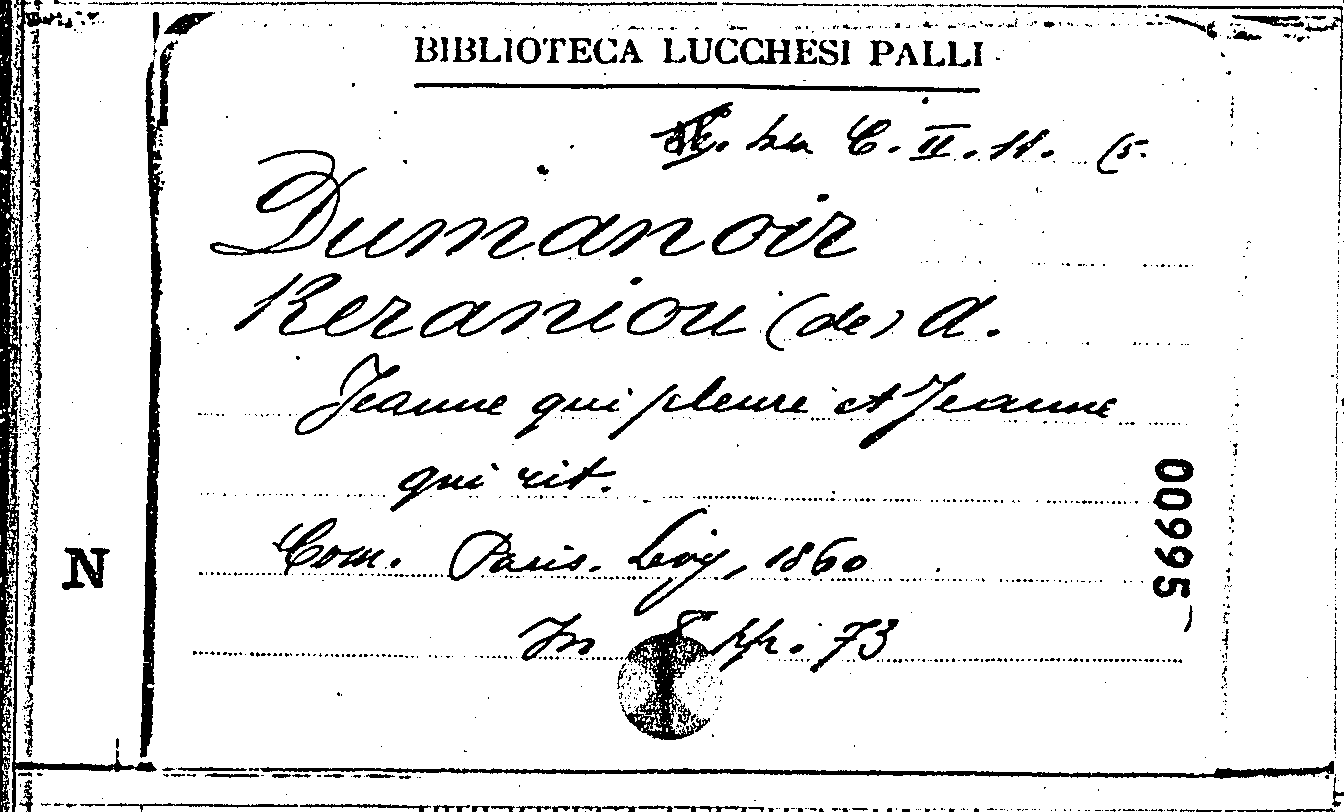 BIBLIOTECA LUCCHESI PALLI
C. II. 11. (5.
Dumanoir
Keraniou (de) A.
Jeanne qui pleure et Jeanne
qui rit.
Com. Paris. Lévy, 1860
In 8 pp. 73
00995
N